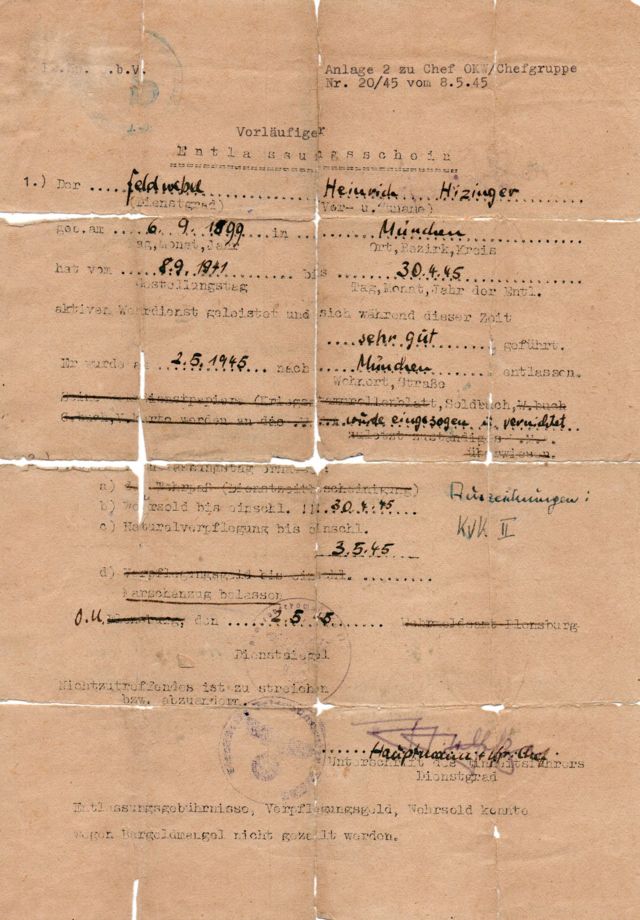 b.V.
Anlage 2 zu Chef OKW/Chefgruppe
Nr. 20/45 vom 8.5.45
Vorläufiger
Entlassungsschein
1.) Der .... feldwebel ........ Heinrich Hizinger
(Dienstgrad) (Vor- u. Zuname)
geb.am .... 6. 9. 1899 .... in ...... München ......
Tag,Monat,Jahr Ort,Bezirk,Kreis
hat vom .... 8.9.1941 ........ bis ...... 30.4.45 ......
Gestellungstag Tag,Monat,Jahr der Entl.
aktiven Wehrdienst geleistet und sich während dieser Zeit
.... sehr gut ...... geführt.
Er wurde am .. 2.5.1945 .. nach ... München ...... entlassen.
Wohnort,Straße
Soldbuch, W.buch
werden an das wurde eingezogen u. vernichtet
überwiesen.
a) Wehrpaß (Dienstzeitbescheinigung)
b) Wehrsold bis einschl. 30.4.45
c) Naturalverpflegung bis einschl.
3.5.45
Auszeichnungen:
KVK II
d) Verpflegungsgeld bis einschl. ........
Marschanzug belassen
O.U. Flensburg, den .... 2.5.45 ...... Wehrmeldeamt Flensburg
Dienstsiegel
Nichtzutreffendes ist zu streichen
bzw. abzuändern.
Hauptmann
Unterschrift des Einheitsführers
Dienstgrad
Entlassungsgebührnisse, Verpflegungsgeld, Wehrsold konnte
wegen Bargeldmangel nicht gezahlt werden.